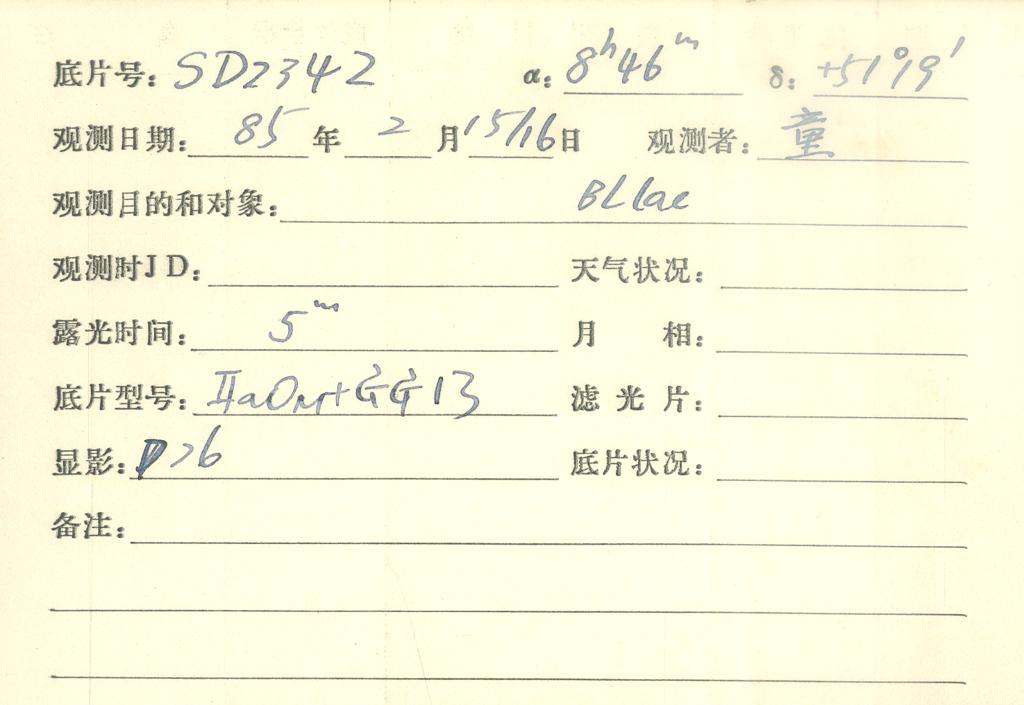 底片号: SD2342 α: 8ʰ46ᵐ δ: +51°19′
观测日期: 85年2月15/16日 观测者: 童
观测目的和对象: BL Lac
观测时JD: 天气状况:
露光时间: 5ᵐ 月 相:
底片型号: ⅡaO+GG13 滤光片:
显影: D76 底片状况:
备注: